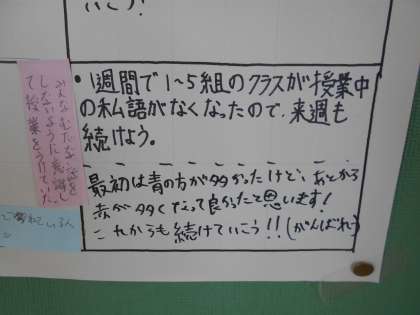 いこう!
・1週間で1~5組のクラスが授業中
の私語がなくなったので、来週も
続けよう。
最初は青の方が多かったけど、あとから
赤が多くなって良かったと思います!
これからも続けていこう!!(がんばれ)
みんなむだな話を
しないように意識し
て授業をうけていた。